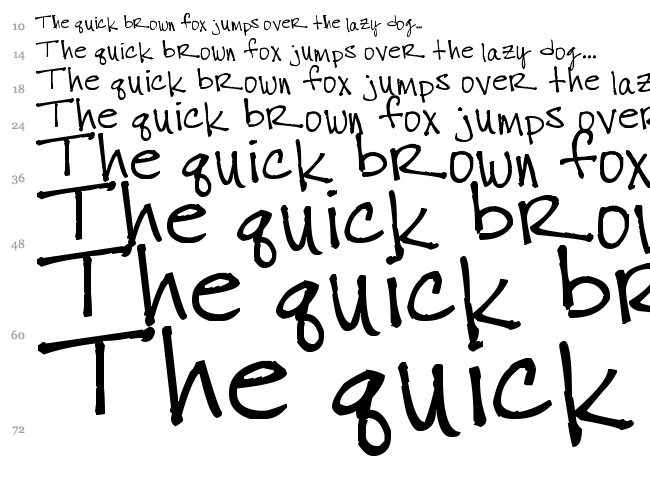 10 The quick brown fox jumps over the lazy dog...
14 The quick brown fox jumps over the lazy dog...
18 The quick brown fox jumps over the laz
24 The quick brown fox jumps over
36 The quick brown fox
48 The quick brow
60 The quick br
72 The quick